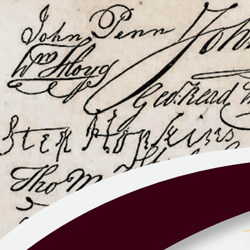 John Penn
John
Wm Floyd
Geo. Read
Step Hopkins
Tho M